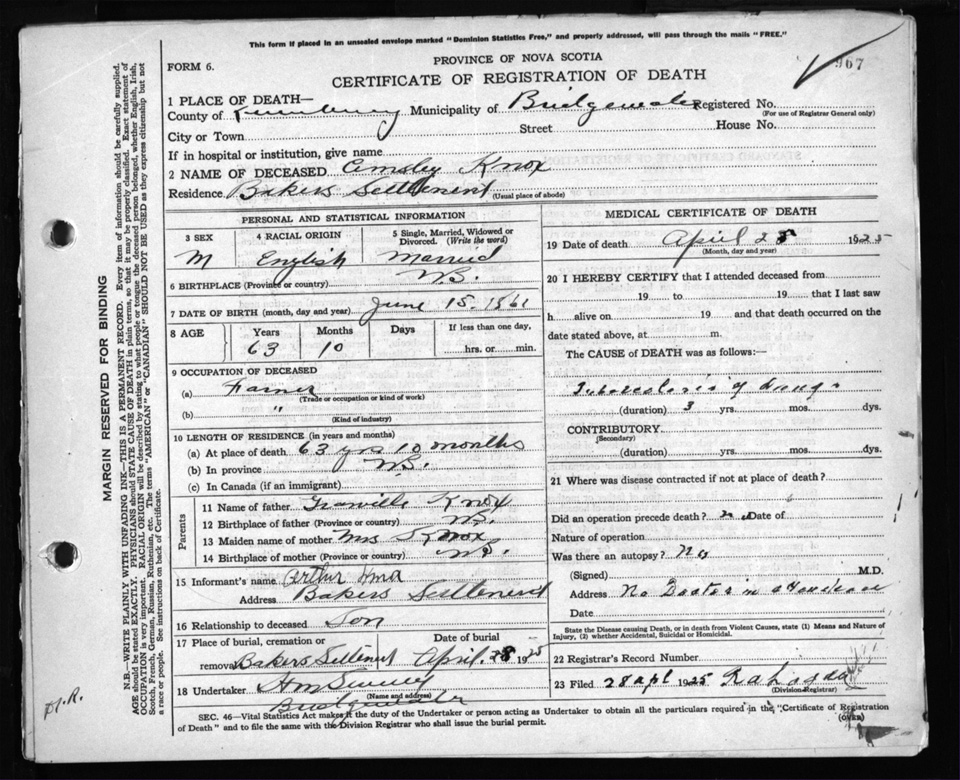 This form if placed in an unsealed envelope marked "Dominion Statistics Free," and properly addressed, will pass through the mails "FREE."
907
FORM 6.
PROVINCE OF NOVA SCOTIA
CERTIFICATE OF REGISTRATION OF DEATH
1 PLACE OF DEATH—
County of Lunenburg Municipality of Bridgewater Registered No.
(For use of Registrar General only)
City or Town Street House No.
If in hospital or institution, give name
2 NAME OF DECEASED Knox
Residence Bakers Settlement (Usual place of abode)
PERSONAL AND STATISTICAL INFORMATION
3 SEX 4 RACIAL ORIGIN 5 Single, Married, Widowed or Divorced. (Write the word)
M English Married
6 BIRTHPLACE (Province or country) N.S.
7 DATE OF BIRTH (month, day and year) June 15. 1861
8 AGE Years Months Days If less than one day,
63 10 hrs. or min.
9 OCCUPATION OF DECEASED
(a) Farmer
(Trade or occupation or kind of work)
(b) "
(Kind of industry)
10 LENGTH OF RESIDENCE (in years and months)
(a) At place of death 63 yrs 10 months
(b) In province N.S.
(c) In Canada (if an immigrant)
Parents
11 Name of father Knox
12 Birthplace of father (Province or country) N.S.
13 Maiden name of mother Mrs Knox
14 Birthplace of mother (Province or country) N.S.
15 Informant's name Arthur
Address Bakers Settlement
16 Relationship to deceased Son
17 Place of burial, cremation or removal Date of burial
Bakers Settlement April. 28 1925
18 Undertaker
(Name and address)
Bridgewater
MEDICAL CERTIFICATE OF DEATH
19 Date of death April 25 1925
(Month, day and year)
20 I HEREBY CERTIFY that I attended deceased from
19 to 19 that I last saw
h alive on 19 and that death occurred on the
date stated above, at m.
The CAUSE of DEATH was as follows:—
Tuberculosis of Lungs
(duration) 3 yrs. mos. dys.
CONTRIBUTORY
(Secondary)
(duration) yrs. mos. dys.
21 Where was disease contracted if not at place of death?
Did an operation precede death? no Date of
Nature of operation
Was there an autopsy? No
(Signed) M.D.
Address No Doctor in attendance
Date
State the Disease causing Death, or in death from Violent Causes, state (1) Means and Nature of Injury, (2) whether Accidental, Suicidal or Homicidal.
22 Registrar's Record Number
23 Filed 28 apl 1925
(Division Registrar)
SEC. 46—Vital Statistics Act makes it the duty of the Undertaker or person acting as Undertaker to obtain all the particulars required in the "Certificate of Registration
of Death" and to file the same with the Division Registrar who shall issue the burial permit. (OVER)
MARGIN RESERVED FOR BINDING
N.B.—WRITE PLAINLY WITH UNFADING INK—THIS IS A PERMANENT RECORD. Every item of information should be carefully supplied.
AGE should be stated EXACTLY. PHYSICIANS should STATE CAUSE OF DEATH in plain terms, so that it may be properly classified. Exact statement of
OCCUPATION is very important. RACIAL ORIGIN will be described by stating to what people or tongue the deceased person belonged, whether English, Irish,
Scotch, French, German, Russian, Ruthenian, etc. The terms "AMERICAN" or "CANADIAN" SHOULD NOT BE USED as they express citizenship but not
a race or people. See instructions on back of Certificate.